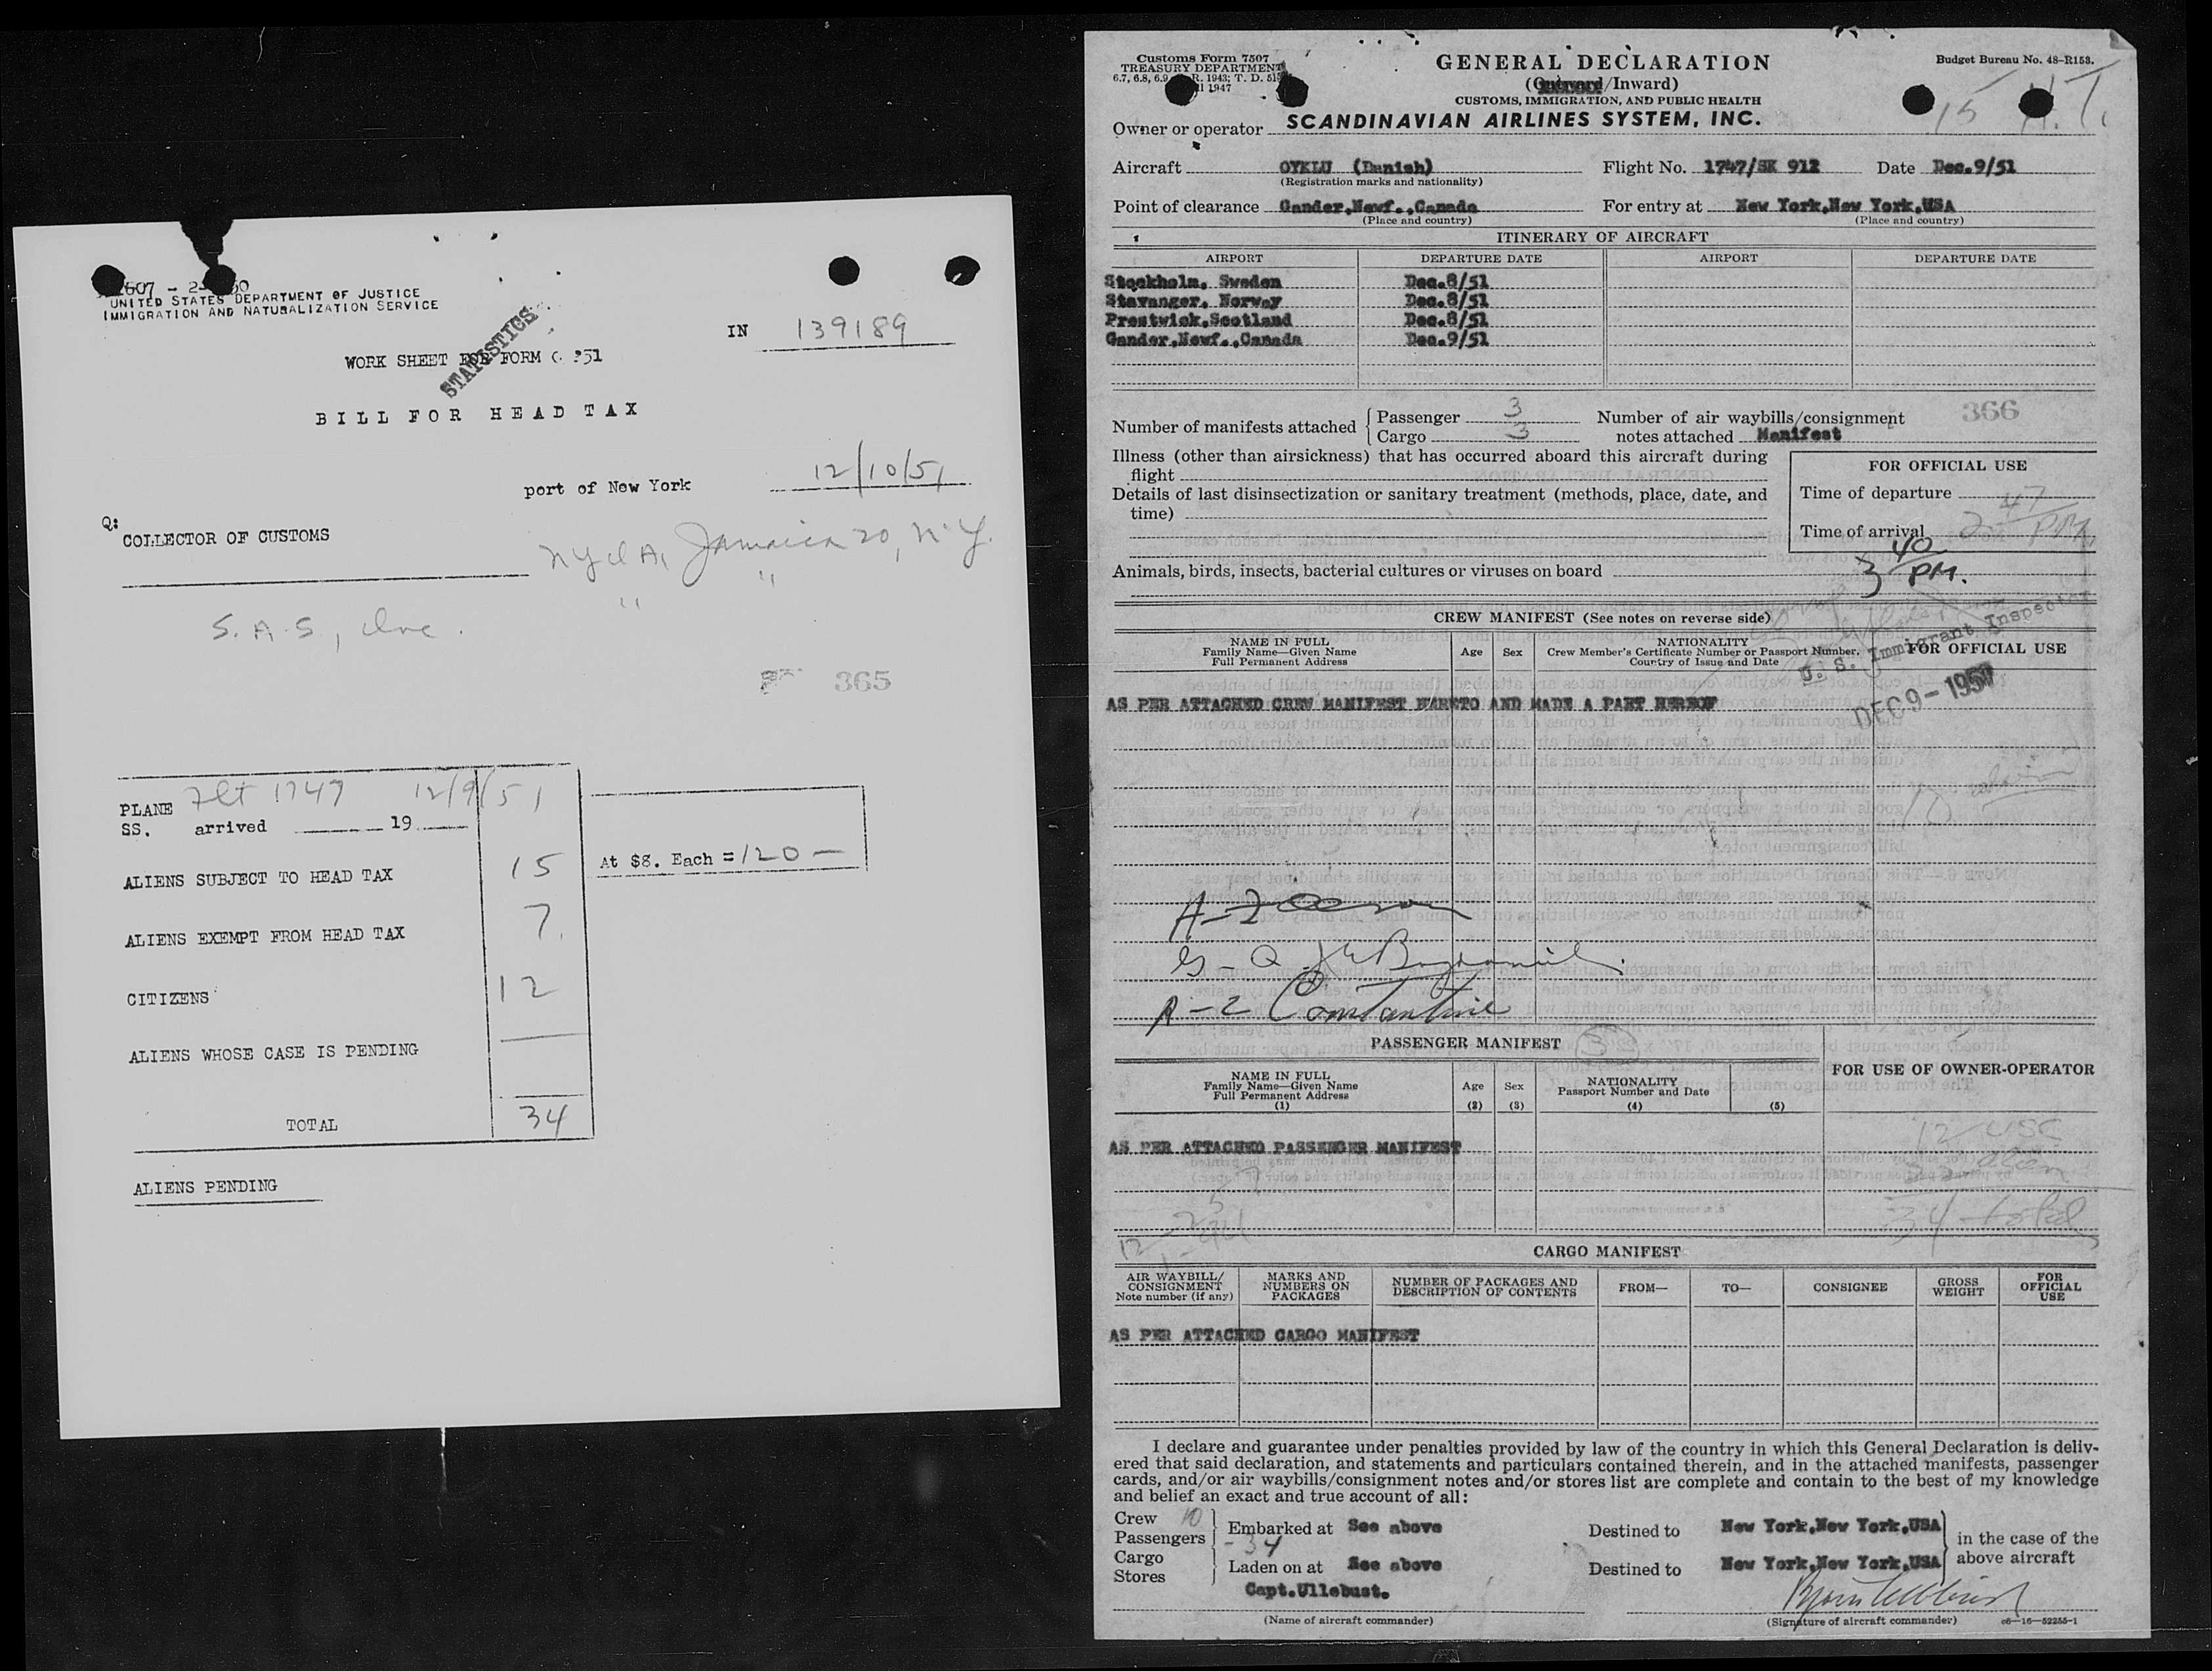 UNITED STATES DEPARTMENT OF JUSTICE
IMMIGRATION AND NATURALIZATION SERVICE
STATISTICS
IN 139189
WORK SHEET FOR FORM
BILL FOR HEAD TAX
port of New York 12/10/51
COLLECTOR OF CUSTOMS
Jamaica 20, N.Y.
" "
S.A.S, Inc.
365
PLANE Flt 1747 12/9/51
SS. arrived 19
ALIENS SUBJECT TO HEAD TAX 15
At $8. Each = 120 —
ALIENS EXEMPT FROM HEAD TAX 7
CITIZENS 12
ALIENS WHOSE CASE IS PENDING —
TOTAL 34
ALIENS PENDING
Customs Form 7507
TREASURY DEPARTMENT
6.7, 6.8, 6.9 R. 1943; T. D.
1947
GENERAL DECLARATION
(Outward/Inward)
CUSTOMS, IMMIGRATION, AND PUBLIC HEALTH
Budget Bureau No. 48-R153.
15 H.T.
Owner or operator SCANDINAVIAN AIRLINES SYSTEM, INC.
Aircraft OYKLU (Danish) Flight No. 1747/SK 912 Date Dec.9/51
(Registration marks and nationality)
Point of clearance Gander,Newf.,Canada For entry at New York,New York,USA
(Place and country) (Place and country)
ITINERARY OF AIRCRAFT
AIRPORT DEPARTURE DATE AIRPORT DEPARTURE DATE
Stockholm, Sweden Dec.8/51
Stavanger, Norway Dec.8/51
Prestwick,Scotland Dec.8/51
Gander,Newf.,Canada Dec.9/51
366
Number of manifests attached Passenger 3 Number of air waybills/consignment
Cargo 3 notes attached Manifest
Illness (other than airsickness) that has occurred aboard this aircraft during
flight
Details of last disinsectization or sanitary treatment (methods, place, date, and
time)
FOR OFFICIAL USE
Time of departure
Time of arrival 2 47 PM
3 40 PM.
Animals, birds, insects, bacterial cultures or viruses on board
CREW MANIFEST (See notes on reverse side)
NAME IN FULL Age Sex NATIONALITY FOR OFFICIAL USE
Family Name—Given Name Crew Member's Certificate Number or Passport Number,
Full Permanent Address Country of Issue and Date
U. S. Immigrant Inspector
DEC 9 - 1951
AS PER ATTACHED CREW MANIFEST HERETO AND MADE A PART HEREOF
10
A-2 Constantine
PASSENGER MANIFEST 3
NAME IN FULL Age Sex NATIONALITY FOR USE OF OWNER-OPERATOR
Family Name—Given Name Passport Number and Date
Full Permanent Address
(1) (2) (3) (4) (5)
AS PER ATTACHED PASSENGER MANIFEST
12 USC
22 alien
34 total
CARGO MANIFEST
AIR WAYBILL/ CONSIGNMENT Note number (if any) MARKS AND NUMBERS ON PACKAGES NUMBER OF PACKAGES AND DESCRIPTION OF CONTENTS FROM— TO— CONSIGNEE GROSS WEIGHT FOR OFFICIAL USE
AS PER ATTACHED CARGO MANIFEST
I declare and guarantee under penalties provided by law of the country in which this General Declaration is deliv-
ered that said declaration, and statements and particulars contained therein, and in the attached manifests, passenger
cards, and/or air waybills/consignment notes and/or stores list are complete and contain to the best of my knowledge
and belief an exact and true account of all:
Crew 10
Passengers - 34 Embarked at See above Destined to New York,New York,USA in the case of the
Cargo
Stores Laden on at See above Destined to New York,New York,USA above aircraft
Capt.Ullebust.
(Name of aircraft commander) (Signature of aircraft commander) c6—16—52255-1